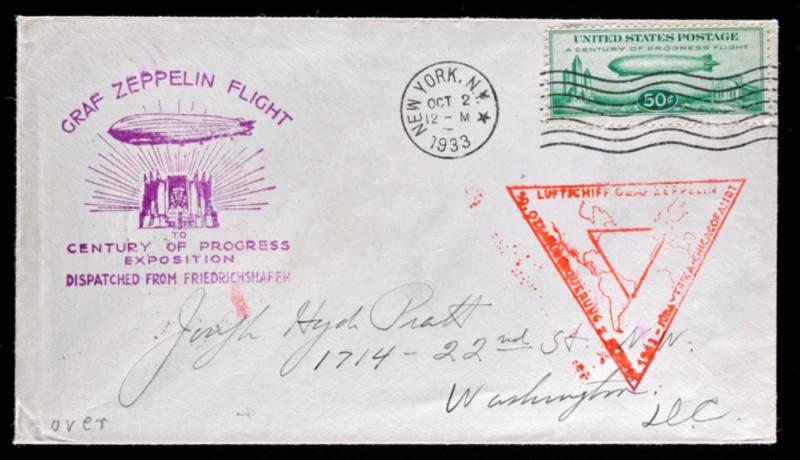 GRAF ZEPPELIN FLIGHT
TO
CENTURY OF PROGRESS
EXPOSITION
DISPATCHED FROM FRIEDRICHSHAFEN
NEW YORK, N.Y.
OCT 2
12 - M
1933
UNITED STATES POSTAGE
A CENTURY OF PROGRESS FLIGHT
50¢
LUFTSCHIFF GRAF ZEPPELIN
1933 - SÜDAMERIKA-CHICAGOFAHRT
Joseph Hyde Pratt
1714 - 22nd St. N.W.
Washington
D.C.
over